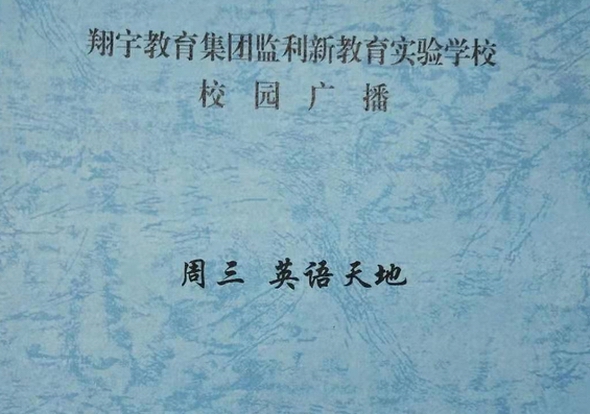 翔宇教育集团监利新教育实验学校
校园广播
周三 英语天地